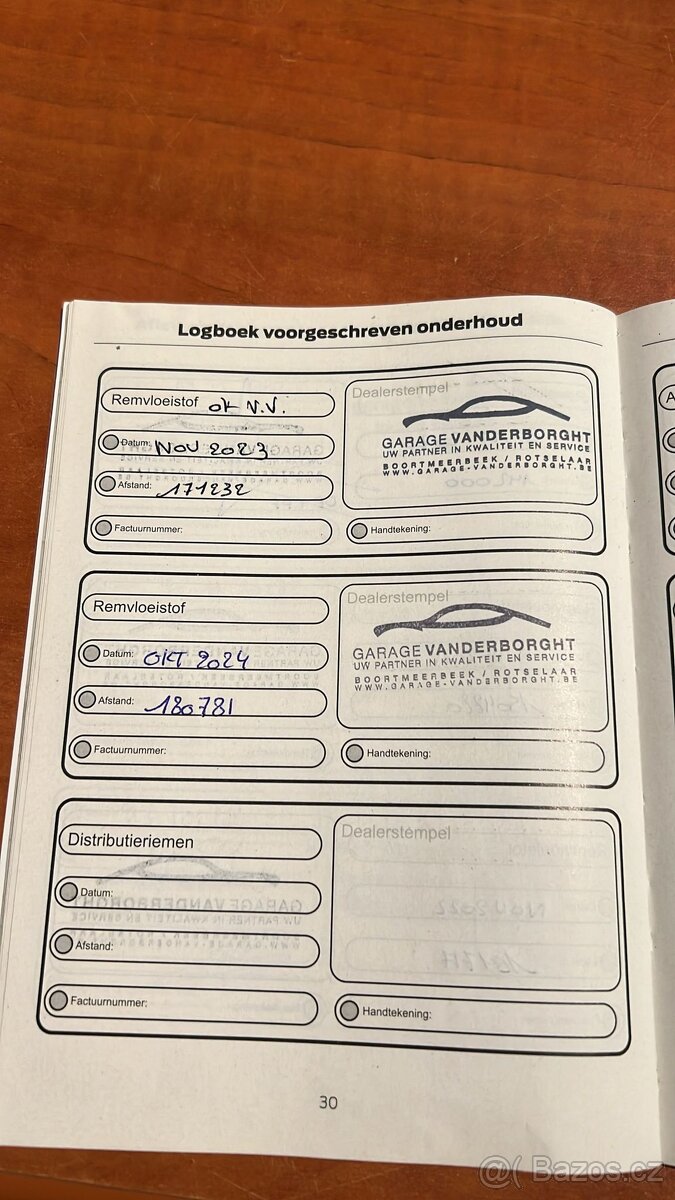 Logboek voorgeschreven onderhoud
Remvloeistof ok V.V.
Datum: NOV 2023
Afstand: 171232
Factuurnummer:
Dealerstempel
GARAGE VANDERBORGHT
UW PARTNER IN KWALITEIT EN SERVICE
BOORTMEERBEEK / ROTSELAAR
WWW.GARAGE-VANDERBORGHT.BE
Handtekening:
Remvloeistof
Datum: OKT 2024
Afstand: 180781
Factuurnummer:
Dealerstempel
GARAGE VANDERBORGHT
UW PARTNER IN KWALITEIT EN SERVICE
BOORTMEERBEEK / ROTSELAAR
WWW.GARAGE-VANDERBORGHT.BE
Handtekening:
Distributieriemen
Datum:
Afstand:
Factuurnummer:
Dealerstempel
Handtekening:
30
Bazos.cz